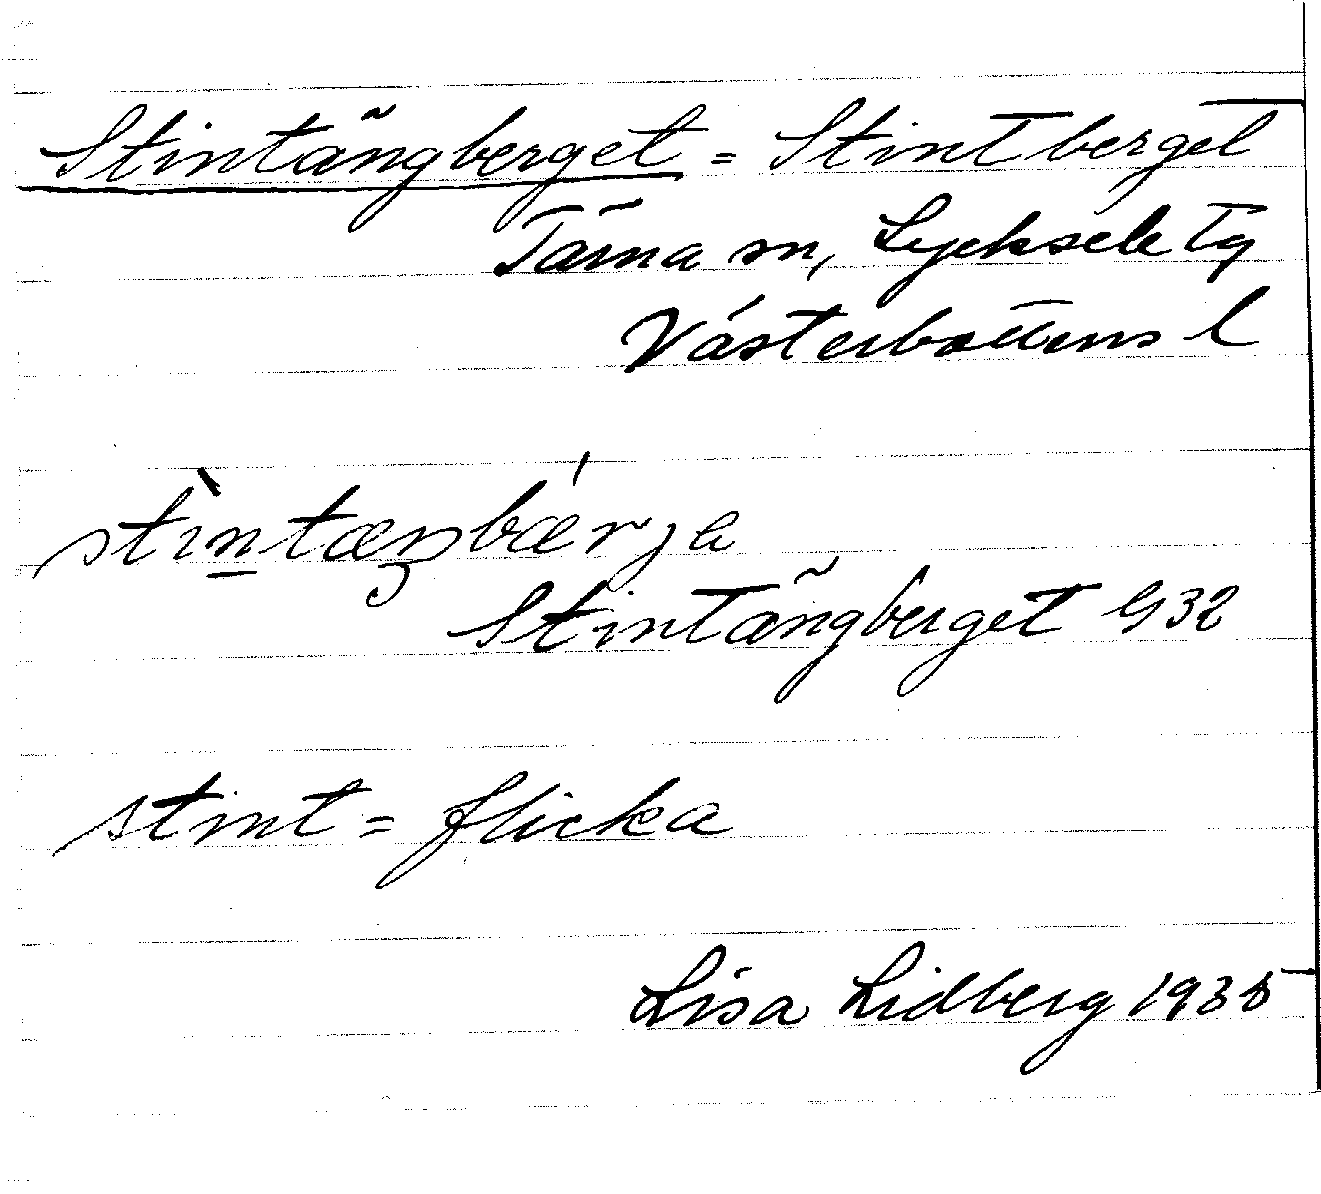 Stintängberget = Stintberget
Tärna sn, Lycksele tg
Västerbottens l
stìn̲tæŋbærja
Stintängberget G32
stint = flicka
Lisa Lidberg 1935